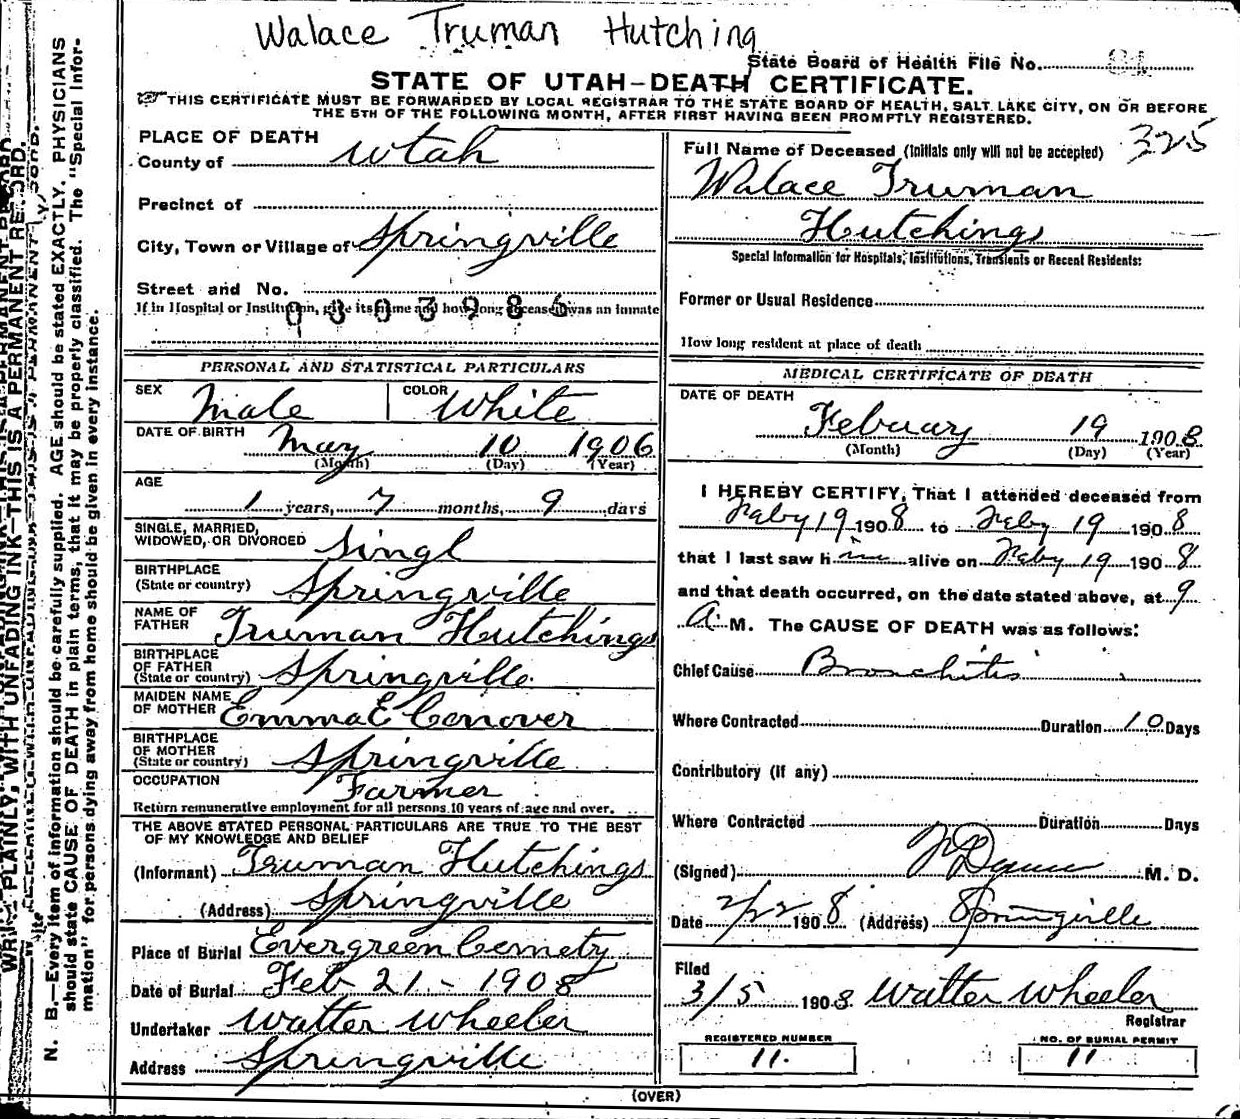 Walace Truman Hutching
State Board of Health File No. 84
STATE OF UTAH-DEATH CERTIFICATE.
THIS CERTIFICATE MUST BE FORWARDED BY LOCAL REGISTRAR TO THE STATE BOARD OF HEALTH, SALT LAKE CITY, ON OR BEFORE
THE 5TH OF THE FOLLOWING MONTH, AFTER FIRST HAVING BEEN PROMPTLY REGISTERED.
325
PLACE OF DEATH
County of Utah
Precinct of
City, Town or Village of Springville
Street and No.
If in Hospital or Institution, give its name and how long deceased was an inmate
0303986
PERSONAL AND STATISTICAL PARTICULARS
SEX Male COLOR White
DATE OF BIRTH May 10 1906
(Month) (Day) (Year)
AGE
1 years, 7 months, 9 days
SINGLE, MARRIED,
WIDOWED, OR DIVORCED Singl
BIRTHPLACE
(State or country) Springville
NAME OF
FATHER Truman Hutchings
BIRTHPLACE
OF FATHER
(State or country) Springville
MAIDEN NAME
OF MOTHER Emma E Conover
BIRTHPLACE
OF MOTHER
(State or country) Springville
OCCUPATION Farmer
Return remunerative employment for all persons 10 years of age and over.
THE ABOVE STATED PERSONAL PARTICULARS ARE TRUE TO THE BEST
OF MY KNOWLEDGE AND BELIEF
(Informant) Truman Hutchings
(Address) Springville
Place of Burial Evergreen Cemetry
Date of Burial Feb 21 - 1908
Undertaker Walter Wheeler
Address Springville
Full Name of Deceased (Initials only will not be accepted)
Walace Truman
Hutchings
Special Information for Hospitals, Institutions, Transients or Recent Residents:
Former or Usual Residence
How long resident at place of death
MEDICAL CERTIFICATE OF DEATH
DATE OF DEATH
Febuary 19 1908
(Month) (Day) (Year)
I HEREBY CERTIFY, That I attended deceased from
Feby 19 1908 to Feby 19 1908
that I last saw him alive on Feby 19 1908
and that death occurred, on the date stated above, at 9
A. M. The CAUSE OF DEATH was as follows:
Chief Cause Bronchitis
Where Contracted Duration 10 Days
Contributory (if any)
Where Contracted Duration Days
(Signed) M. D.
Date 2/22 1908 (Address) Springville
Filed
3/5 1908 Walter Wheeler
Registrar
REGISTERED NUMBER
11.
NO. OF BURIAL PERMIT
11
(OVER)
N. B.—Every item of information should be carefully supplied. AGE should be stated EXACTLY. PHYSICIANS
should state CAUSE OF DEATH in plain terms, that it may be properly classified. The "Special Infor-
mation" for persons dying away from home should be given in every instance.
WRITE PLAINLY, WITH UNFADING INK—THIS IS A PERMANENT RECORD.